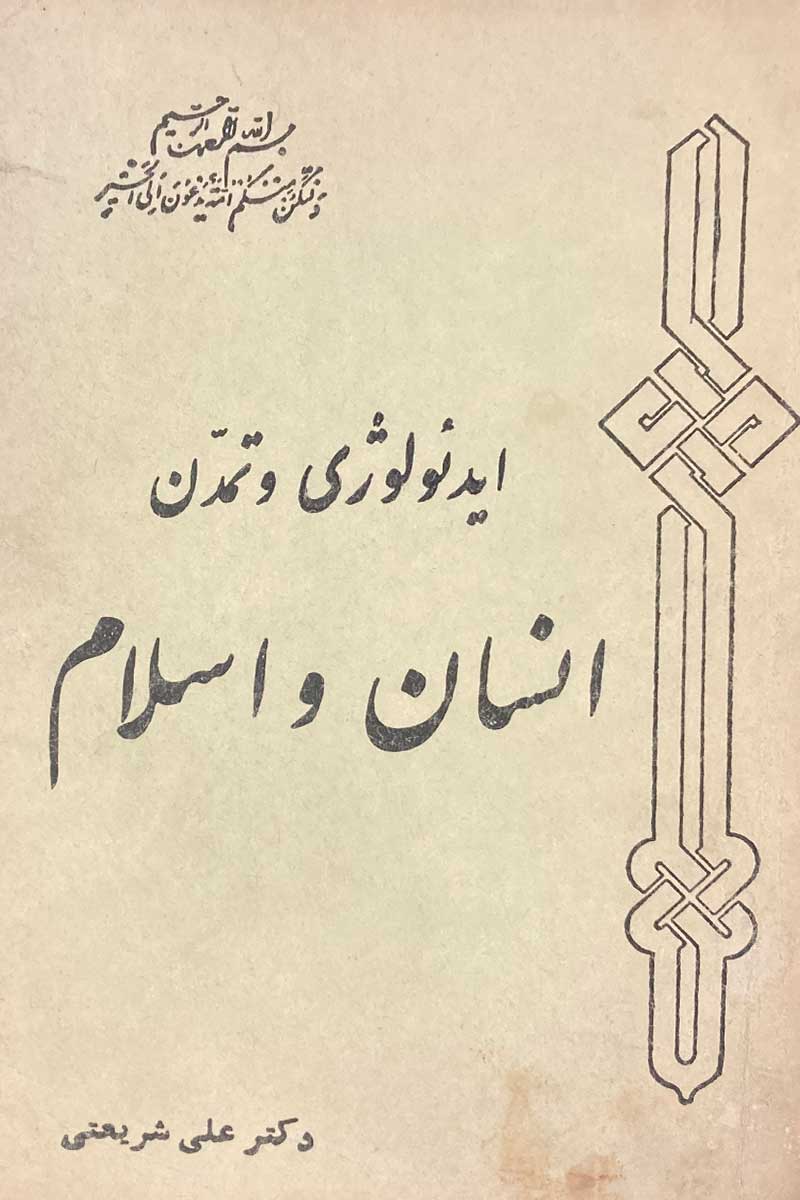 بسم الله الرحمن الرحیم
ولتکن منکم امة یدعون الی الخیر
ایدئولوژی و تمدّن
انسان و اسلام
دکتر علی شریعتی